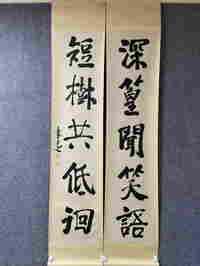 深篁聞笑語
短樹共低徊